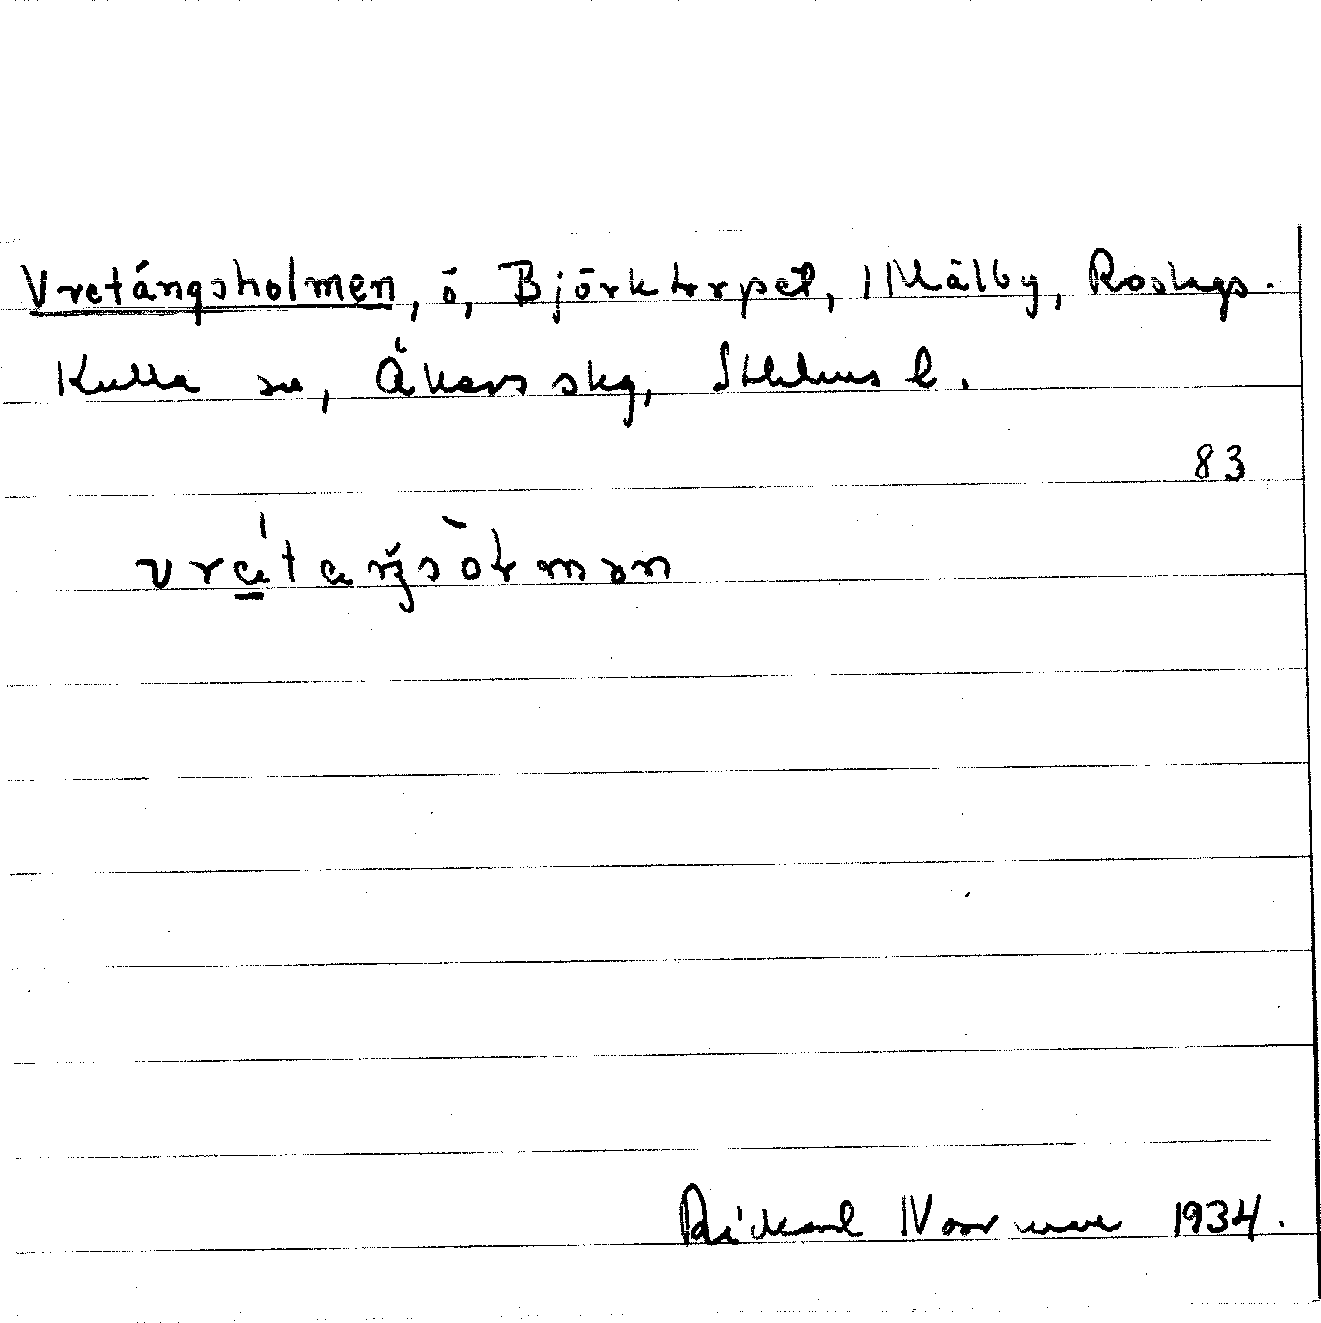 Vretängsholmen, ö, Björktorpet, 1 Mälby, Roslags.
Kulla sn, Åkers skg, Sthlms l.
83
Rickard Norman 1934.